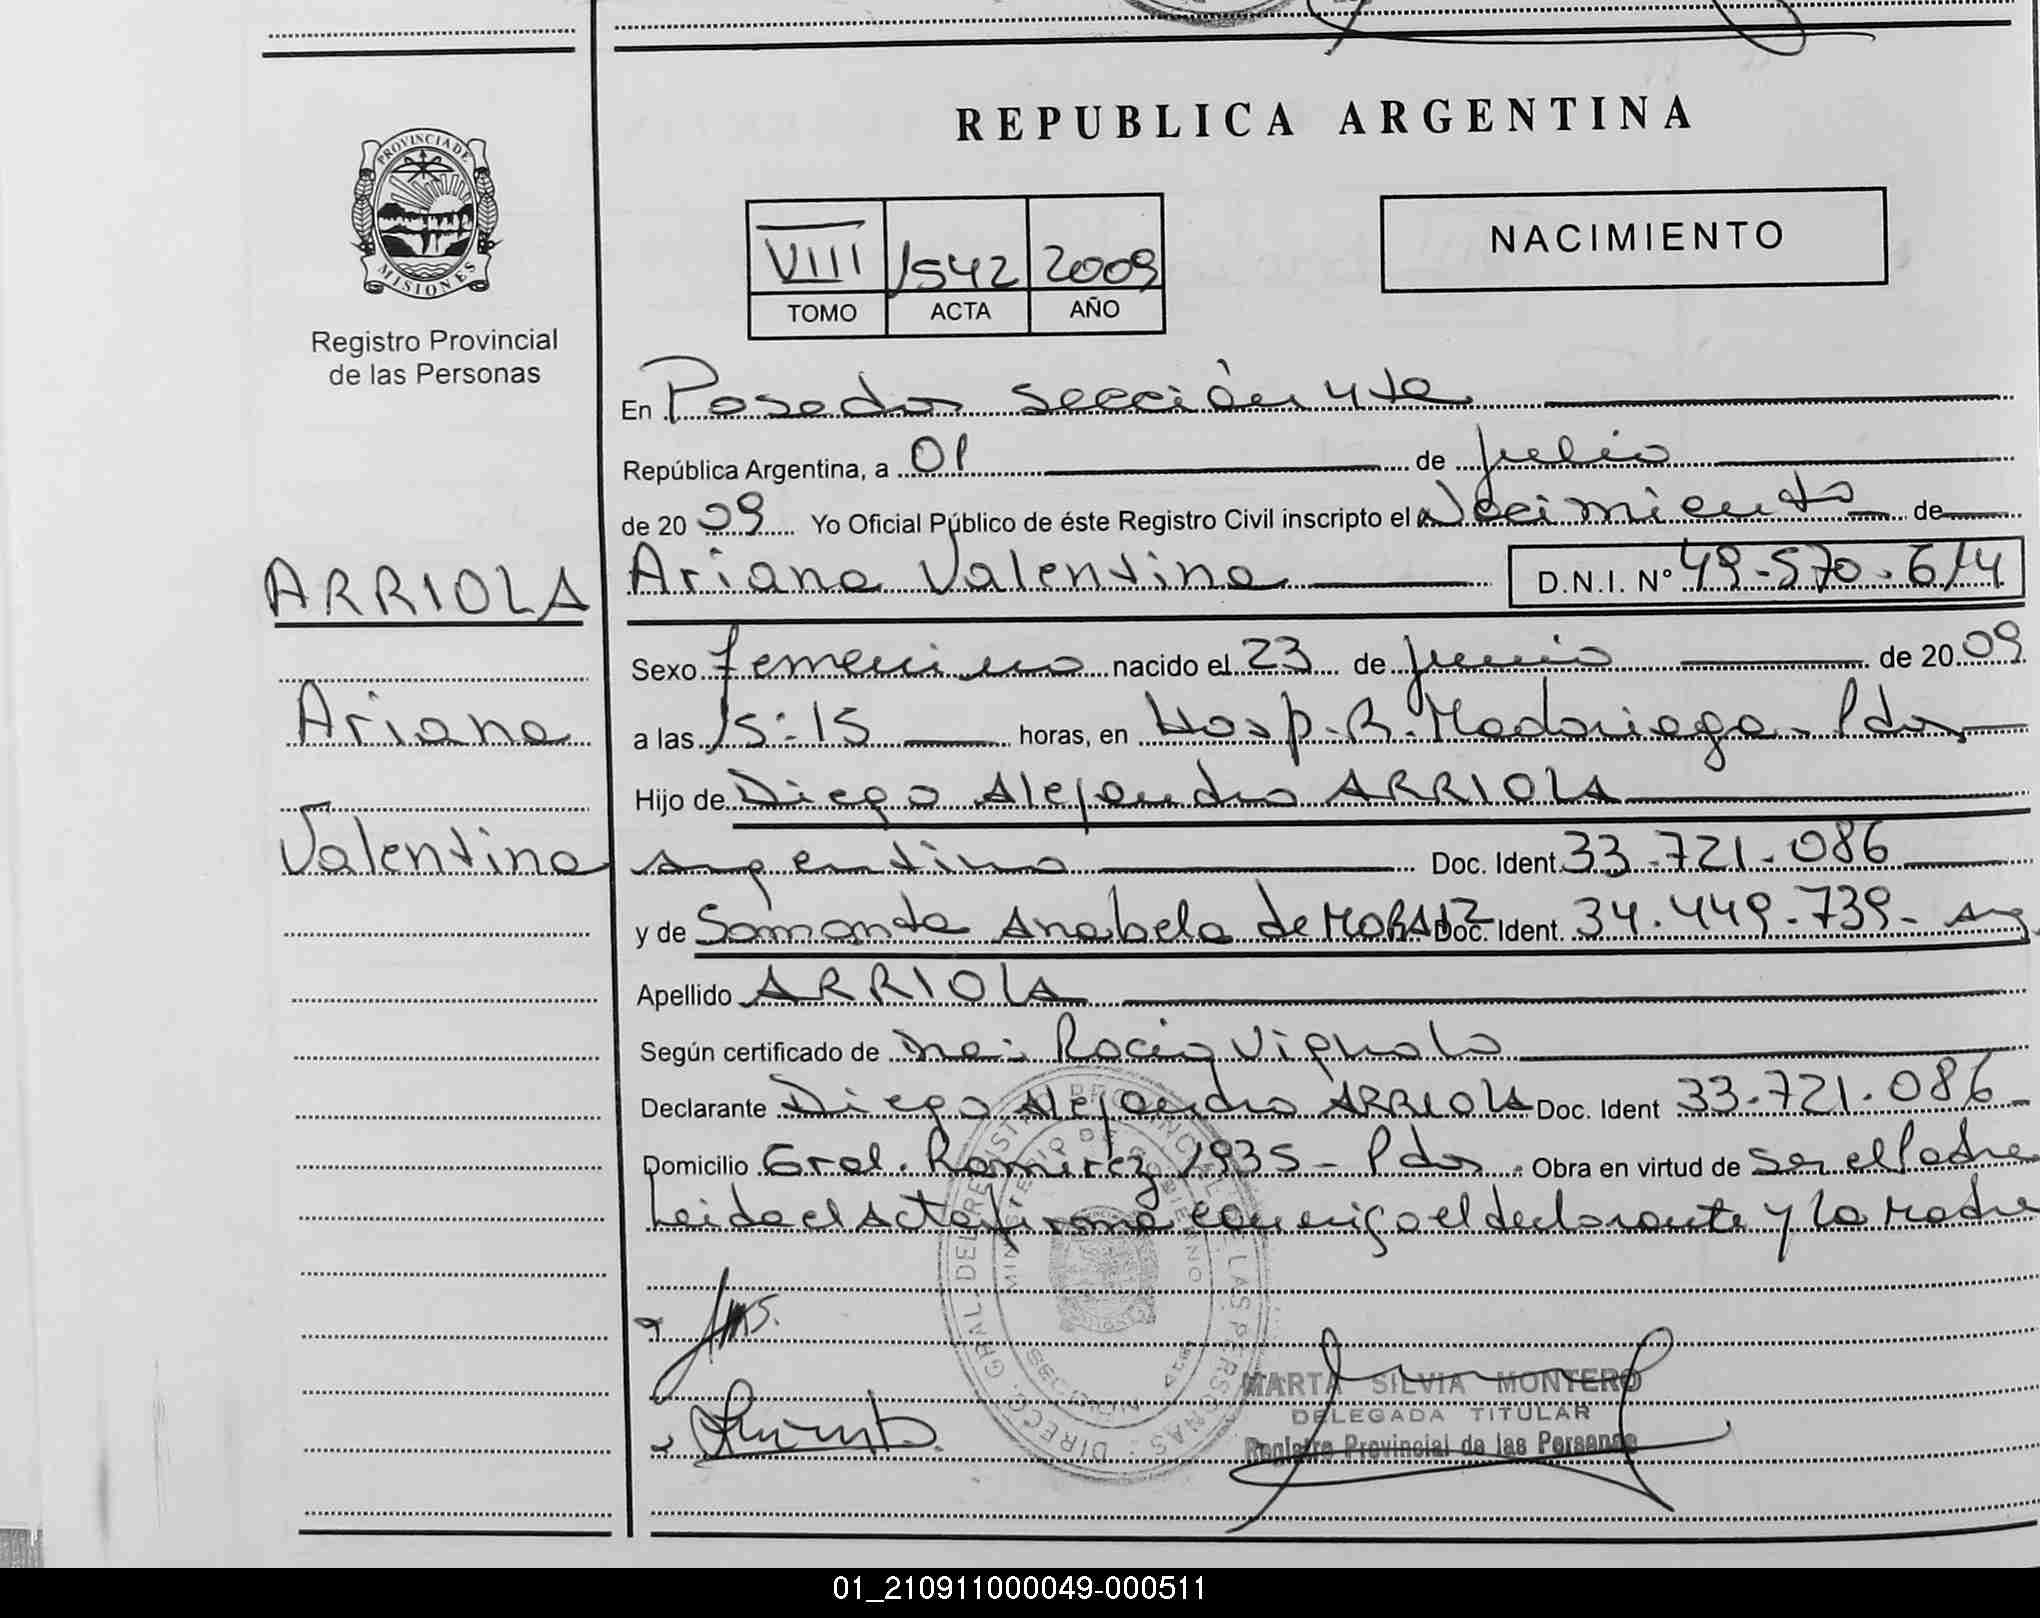 REPUBLICA ARGENTINA
PROVINCIA DE MISIONES
Registro Provincial
de las Personas
VIII 1542 2009
TOMO ACTA AÑO
NACIMIENTO
En Posadas sección 4ta
República Argentina, a 01 de julio
de 2009 Yo Oficial Público de éste Registro Civil inscripto el Nacimiento de
ARRIOLA
Ariana
Valentina
Ariana Valentina D.N.I. Nº 49.570.614
Sexo femenino nacido el 23 de junio de 2009
a las 15:15 horas, en Hosp. R. Madariaga - Pdas
Hijo de Diego Alejandro ARRIOLA
argentino Doc. Ident. 33.721.086
y de Samanta Anabela de MORAIZ Doc. Ident. 34.449.739- Arg.
Apellido ARRIOLA
Según certificado de Dra: Rocio Vignolo
Declarante Diego Alejandro ARRIOLA Doc. Ident 33.721.086-
Domicilio Gral. Ramirez 1935 - Pdas. Obra en virtud de ser el Padre
Leida el Acta firma conmigo el declarante y la Madre
DIRECC. GRAL. DEL REGISTRO PROVINCIAL DE LAS PERSONAS
MINISTERIO DE GOBIERNO
MARTA SILVIA MONTERO
DELEGADA TITULAR
Registro Provincial de las Personas
01_210911000049-000511